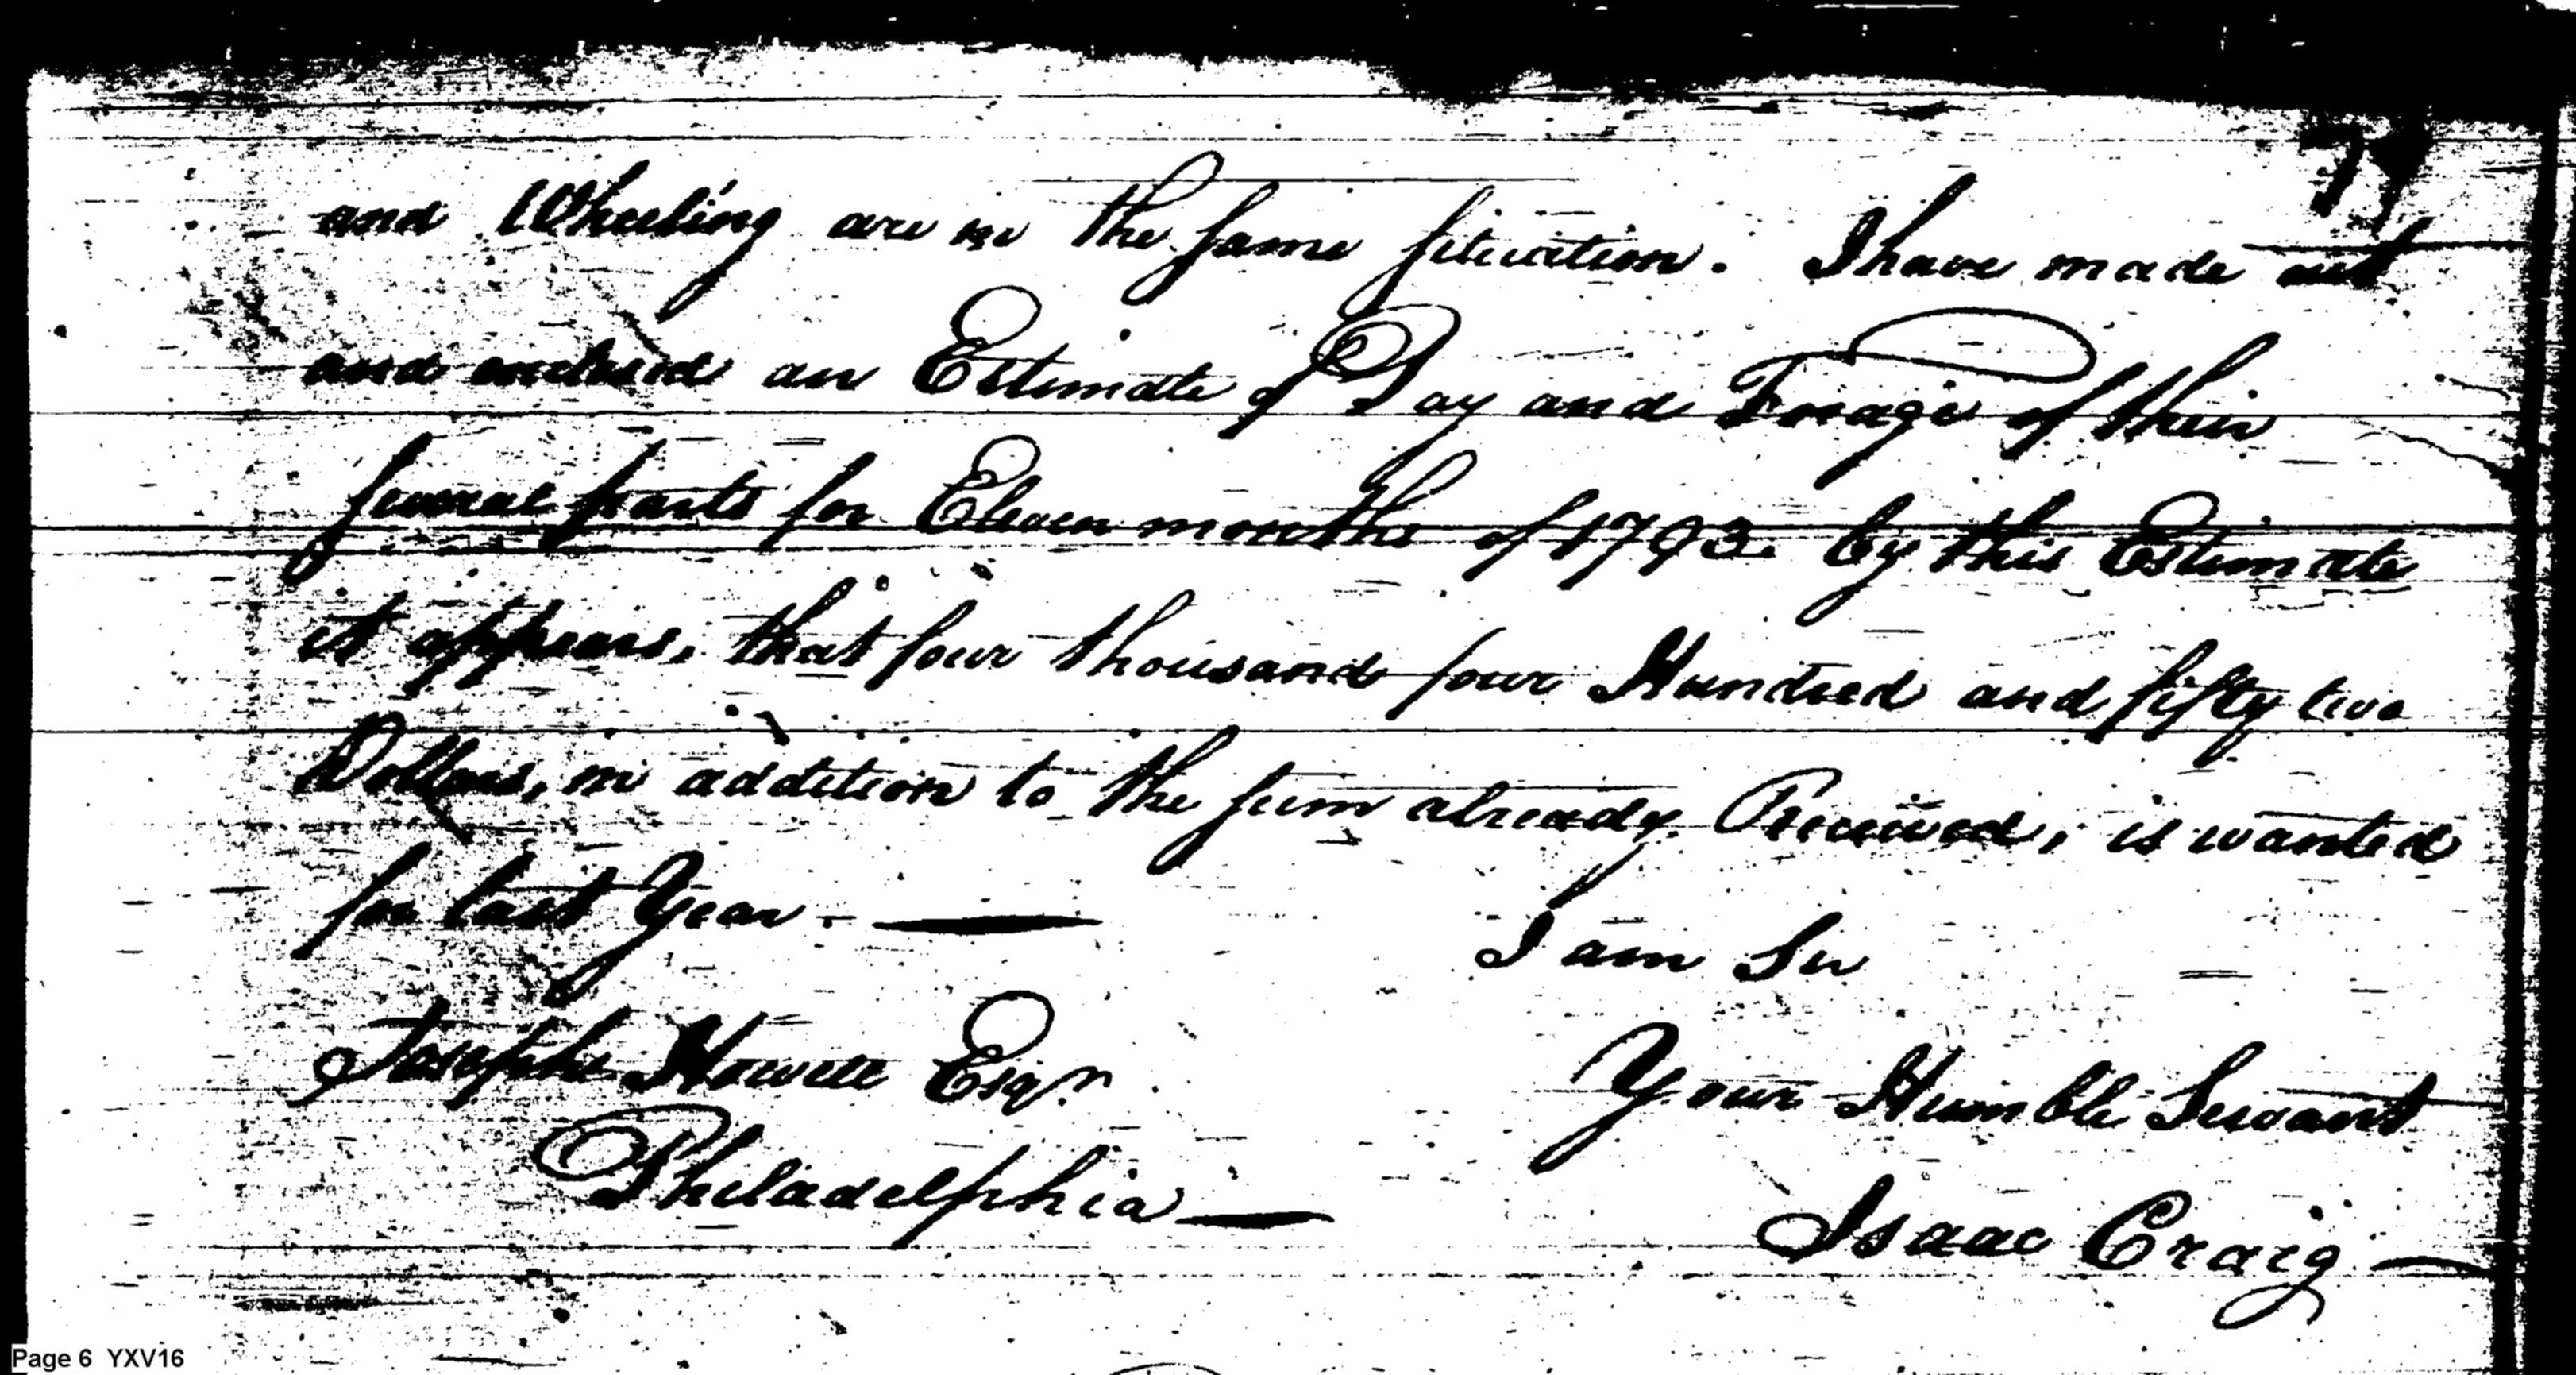 and Wheeling are in the same situation. I have made out
and enclosed an Estimate of Pay and Forage of their
several parts for Eleven months of 1793. by this Estimate
it appears, that four thousand four Hundred and fifty two
Dollars, in addition to the sum already Received, is wanted
for last Year. —
I am Sir
Joseph Howell Esqr.
Your Humble Servant
Philadelphia —
Isaac Craig —
Page 6 YXV16